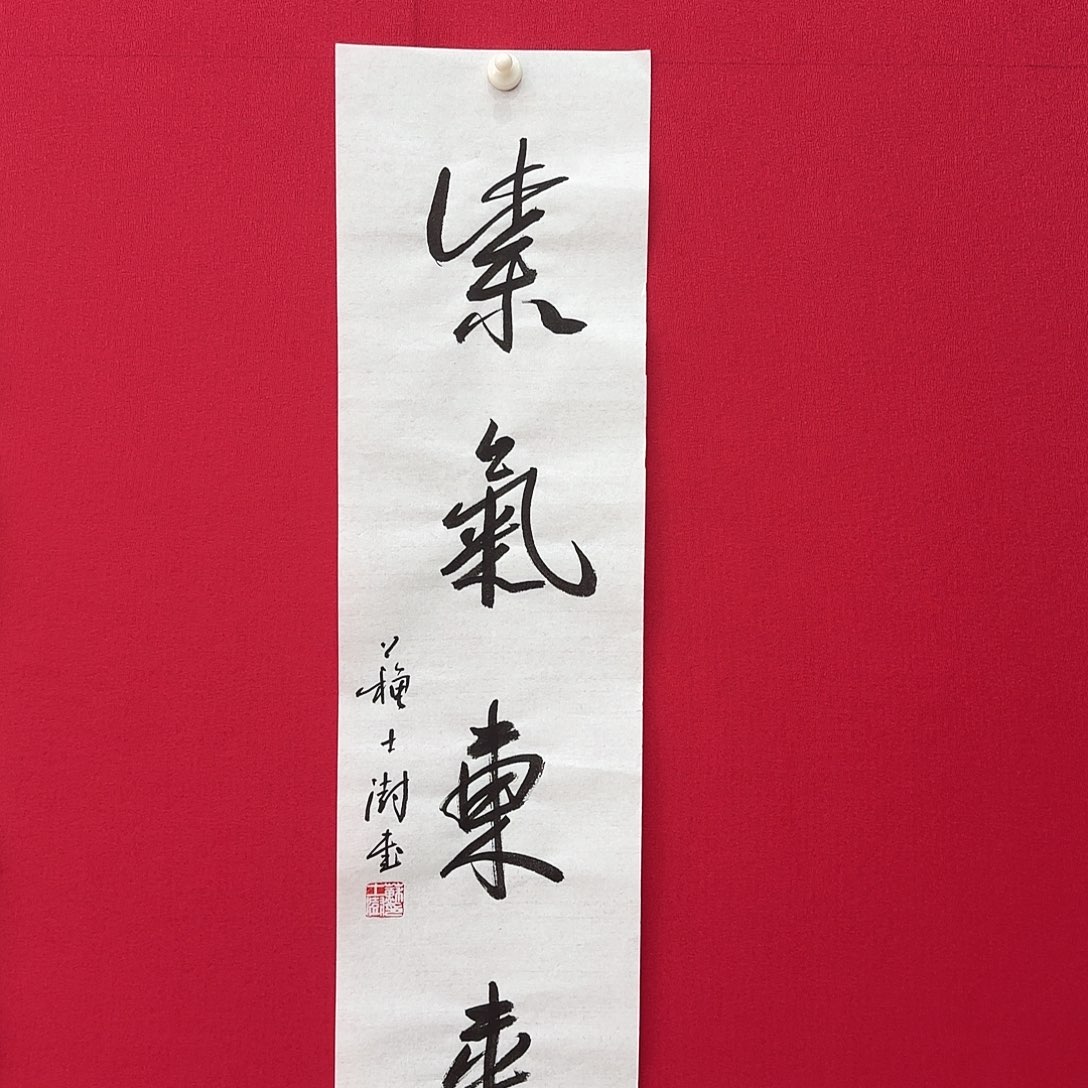 紫氣東來
蘇士澍書